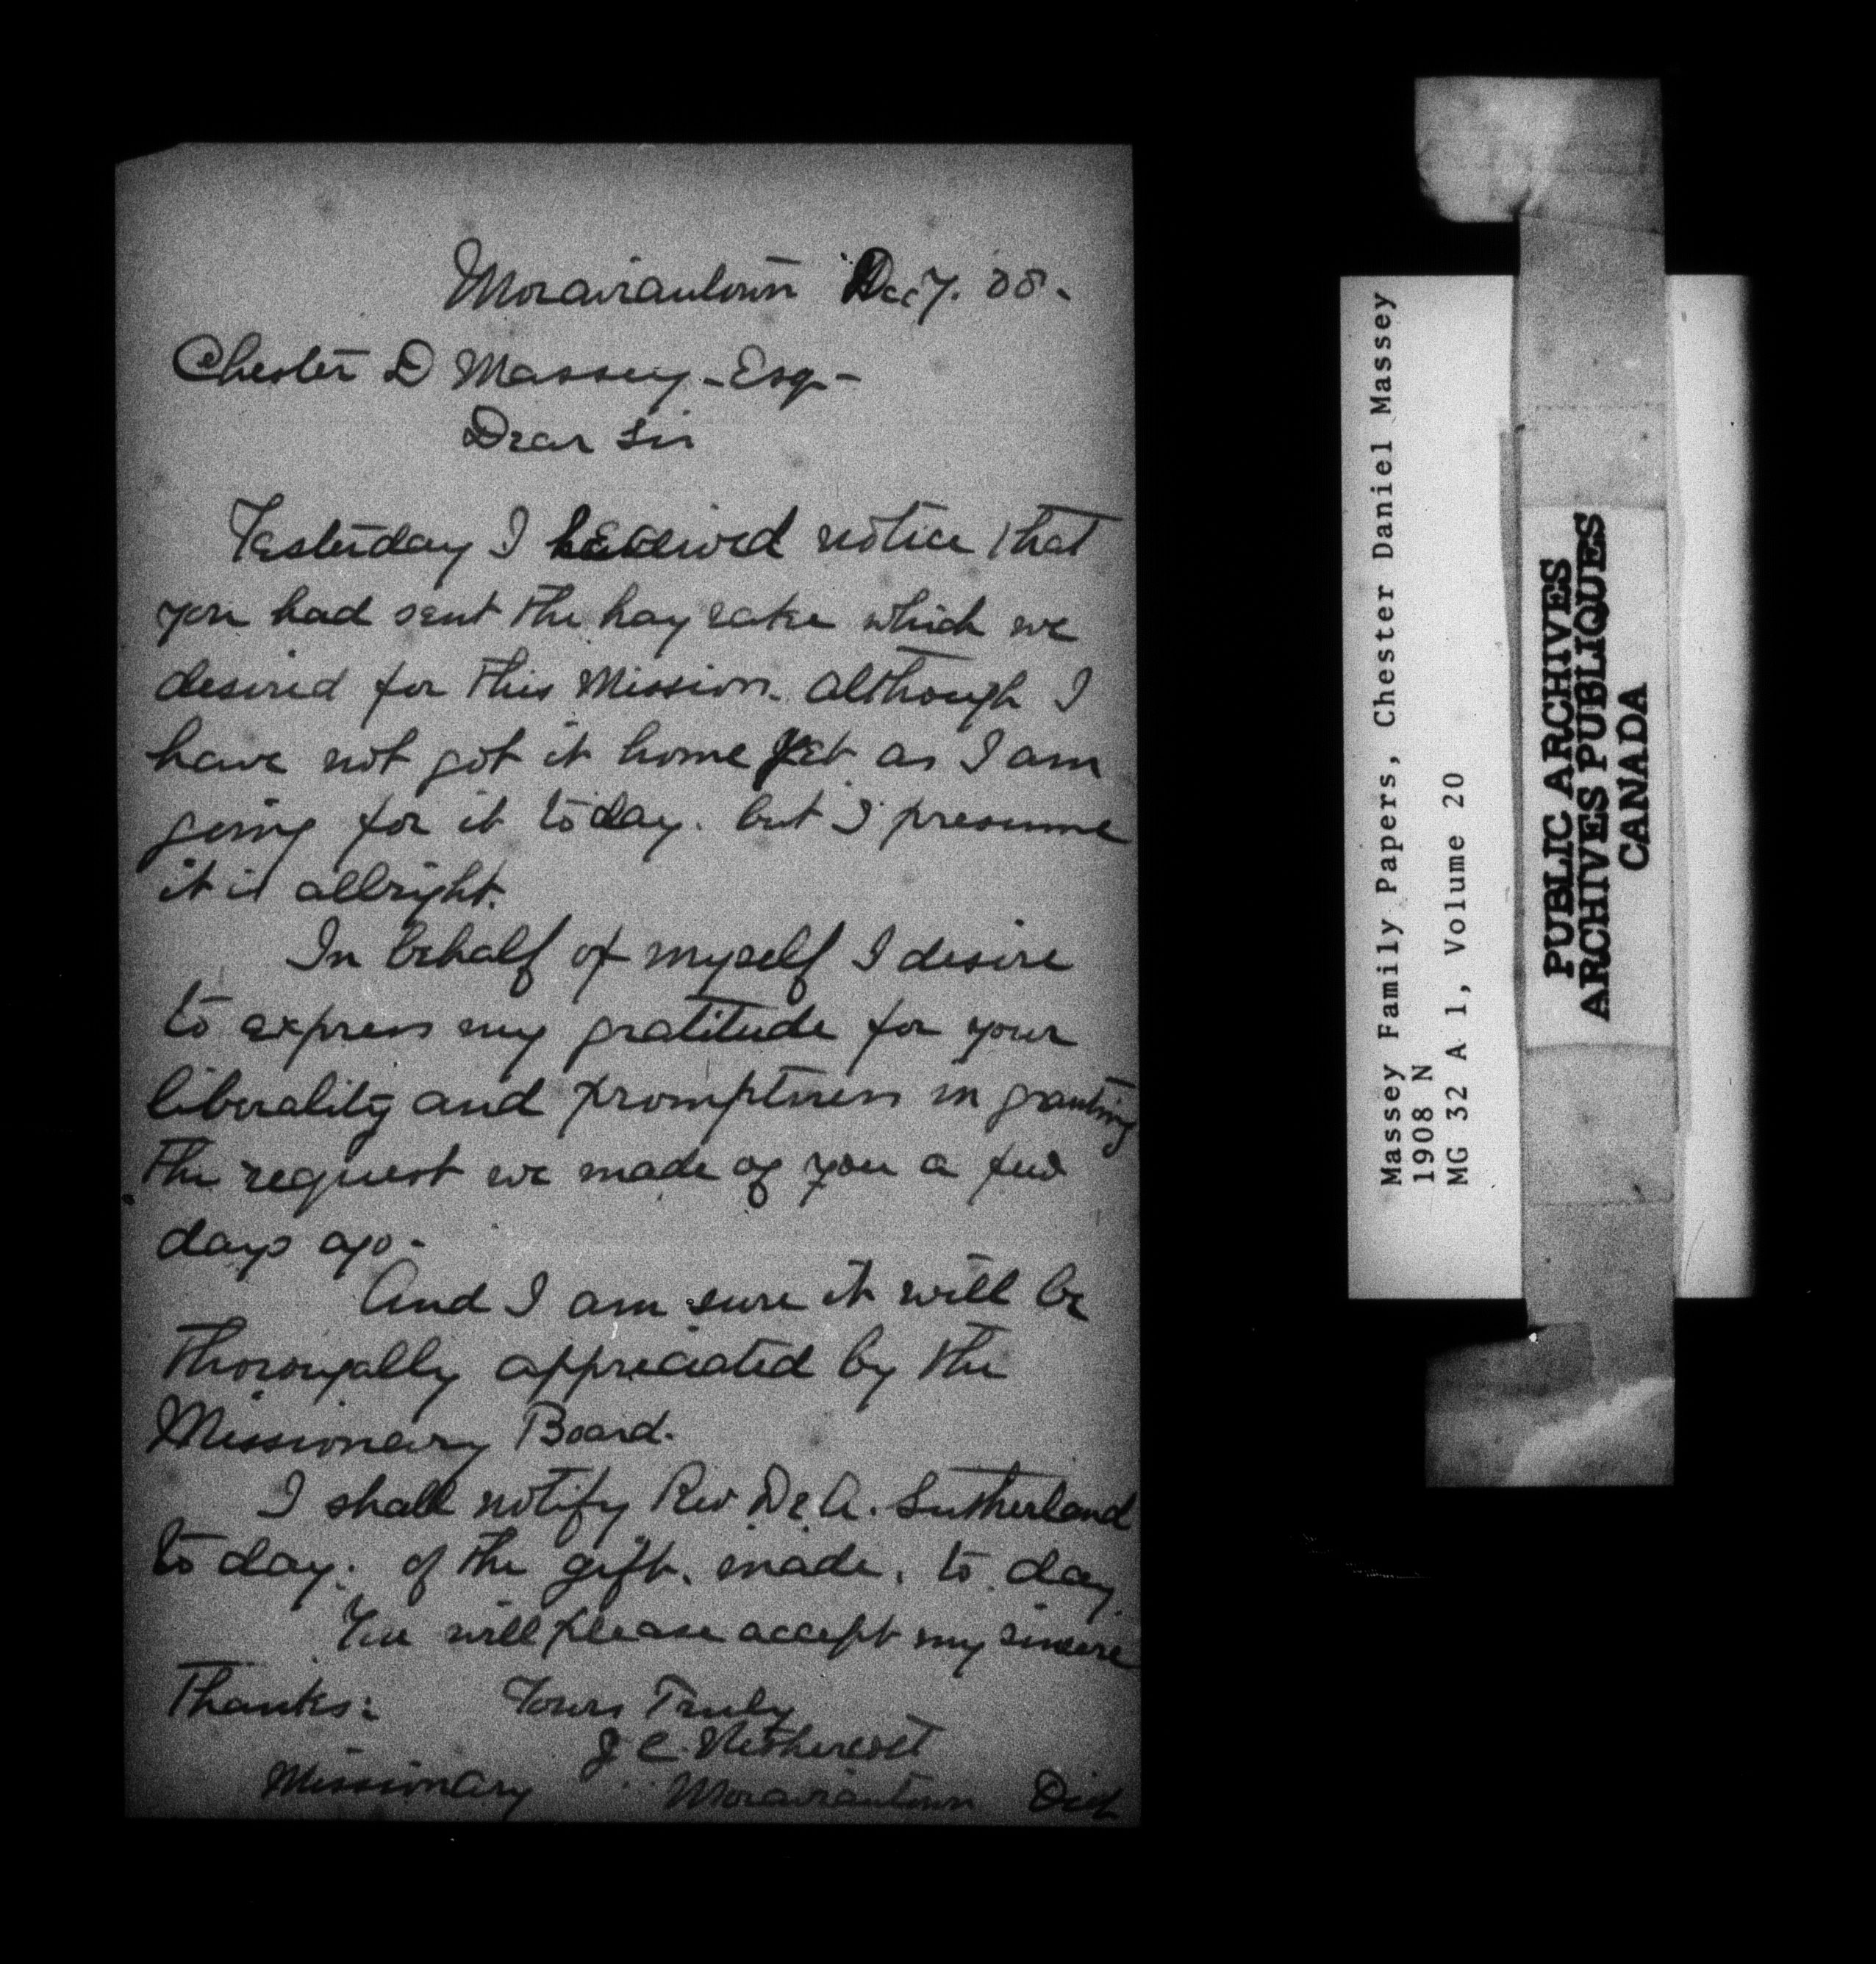 Moraviantown Dec 7. 08.
Chester D Massey - Esq -
Dear Sir
Yesterday I received notice that
you had sent the hay rake which we
desired for this Mission. although I
have not got it home yet as I am
going for it to day. but I presume
it is allright.
In behalf of myself I desire
to express my gratitude for your
liberality and promptness in granting
the request we made of you a few
days ago -
And I am sure it will be
thoroughally appreciated by the
Missionary Board.
I shall notify Rev. Dr. A. Sutherland
to day. of the gift. made. to. day.
You will please accept my sincere
Thanks: Yours Truly
J C. Nethercott
Missionary Moraviantown
Massey Family Papers, Chester Daniel Massey
1908 N
MG 32 A 1, Volume 20
PUBLIC ARCHIVES
ARCHIVES PUBLIQUES
CANADA